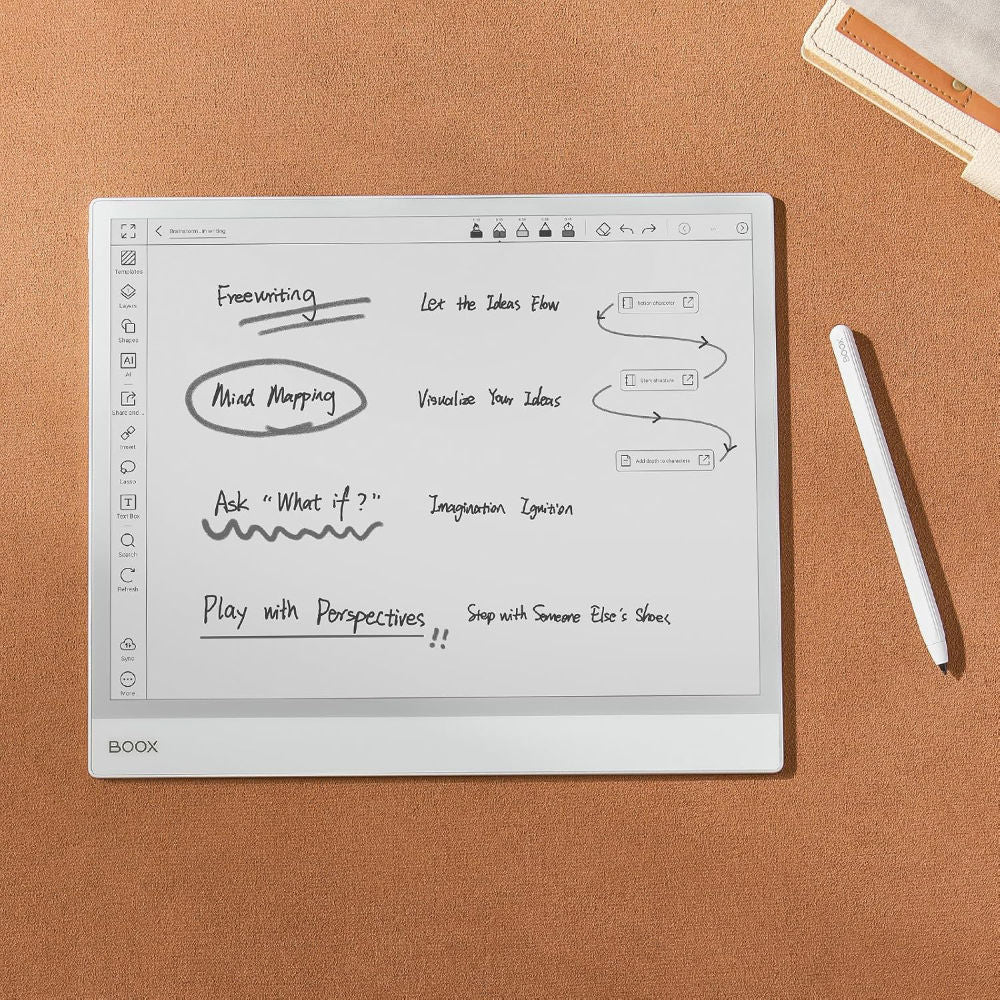 Brainstorm...in writing
Templates
Layers
Shapes
AI
AI
Share and...
Insert
Lasso
T
Text Box
Search
Refresh
Sync
More
Freewriting Let the Ideas Flow
Mind Mapping Visualize Your Ideas
Ask "What if?" Imagination Ignition
Play with Perspectives!! Step with Someone Else's Shoes
fiction character
Story structure
Add depth to characters
BOOX
BOOX